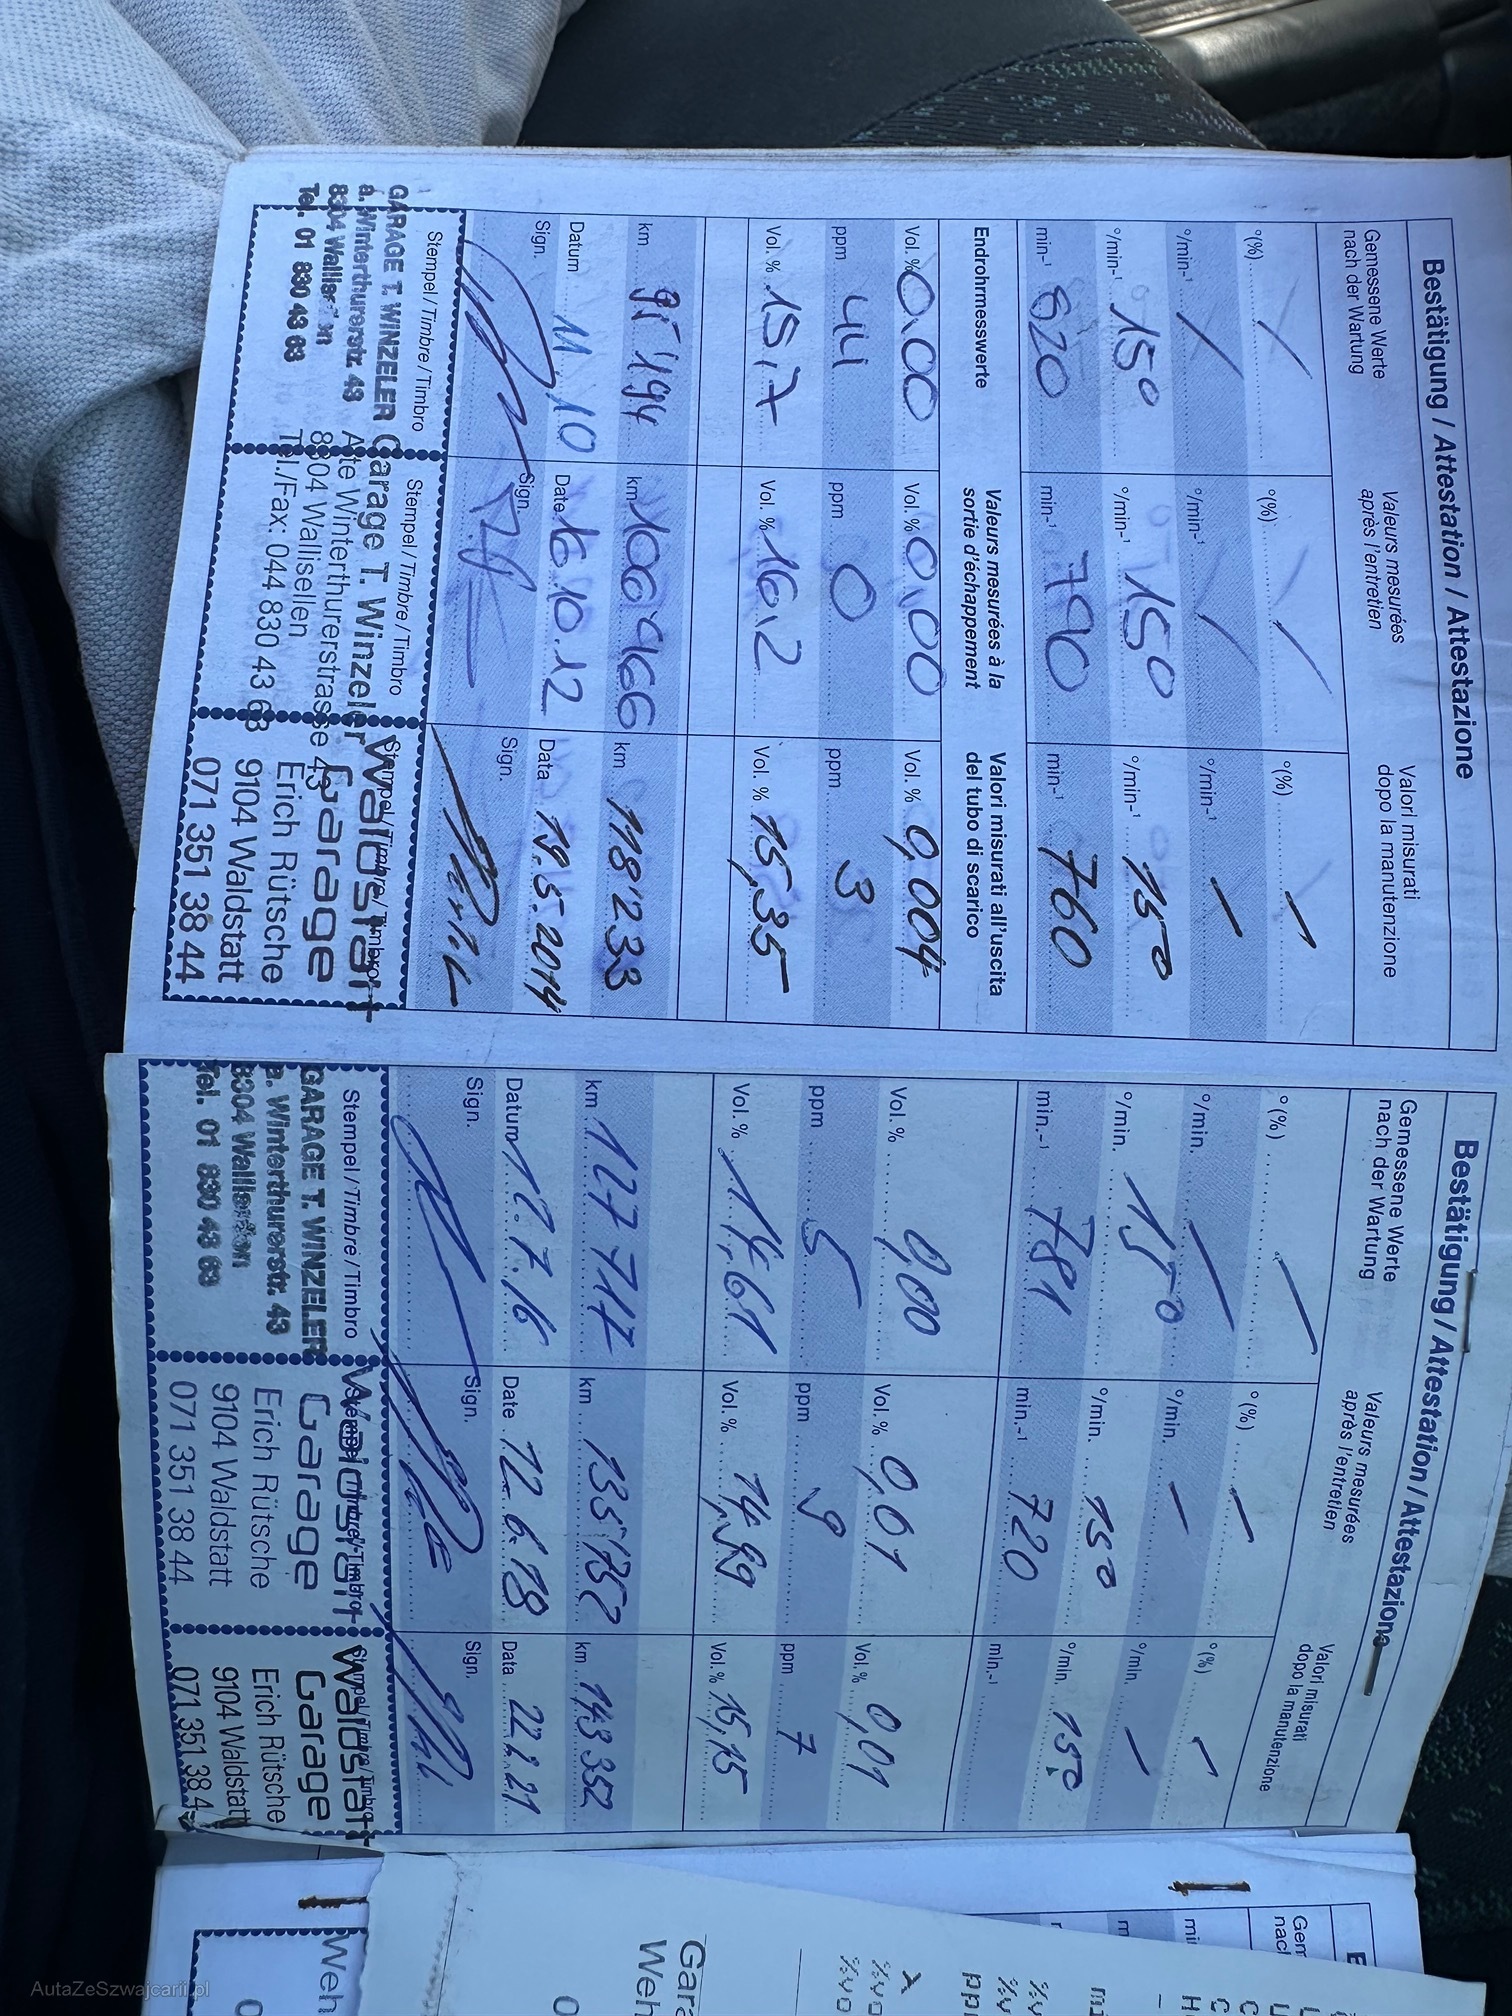 Bestätigung / Attestation / Attestazione
Gemessene Werte
nach der Wartung
Valeurs mesurées
après l'entretien
Valori misurati
dopo la manutenzione
°(%) °(%) °(%)
°/min-¹ °/min-¹ °/min-¹
°/min-¹ 15° °/min-¹ 150 °/min-¹ 15°
min-¹ 820 min-¹ 790 min-¹ 760
Endrohrmesswerte
Valeurs mesurées à la
sortie d'échappement
Valori misurati all'uscita
del tubo di scarico
Vol. % 0.00 Vol. % 0,00 Vol. % 0,004
ppm 44 ppm 0 ppm 3
Vol. % 15,7 Vol. % 16.2 Vol. % 15,35
km 95'194 km 106'966 km 118'233
Datum 11.10 Date 16.10.12 Data 19.5.2014
Sign. Sign. Sign.
Stempel / Timbre / Timbro
GARAGE T. WINZELER
a. Winterthurerstr. 43
8304
Tel. 01 830 43 63
Stempel / Timbre / Timbro
Garage T. Winzeler
Alte Winterthurerstrasse 43
8304 Wallisellen
Tel./Fax: 044 830 43 63
Stempel / Timbre / Timbro
Waldstatt
Garage
Erich Rütsche
9104 Waldstatt
071 351 38 44
Bestätigung / Attestation / Attestazione
Gemessene Werte
nach der Wartung
Valeurs mesurées
après l'entretien
Valori misurati
dopo la manutenzione
°(%) °(%) °(%)
°/min. °/min. °/min.
°/min. 15° °/min. 15° °/min. 15°
min.-¹ 781 min.-¹ 720 min.-¹
Vol. % 0,00 Vol. % 0,01 Vol. % 0,01
ppm 5 ppm 9 ppm 7
Vol. % 14,61 Vol. % 14,99 Vol. % 15,15
km 127 717 km 135'752 km 143 352
Datum 12.7.16 Date 12.6.18 Data 22.2.21
Sign. Sign. Sign.
Stempel / Timbre / Timbro
GARAGE T. WINZELER
a. Winterthurerstr. 43
8304 Wallisellen
Tel. 01 830 43 63
Waldstatt
Garage
Erich Rütsche
9104 Waldstatt
071 351 38 44
Waldstatt
Garage
Erich Rütsche
9104 Waldstatt
071 351 38 4
Gem
nach
Gara
Weh
Weh
AutaZeSzwajcarii.pl